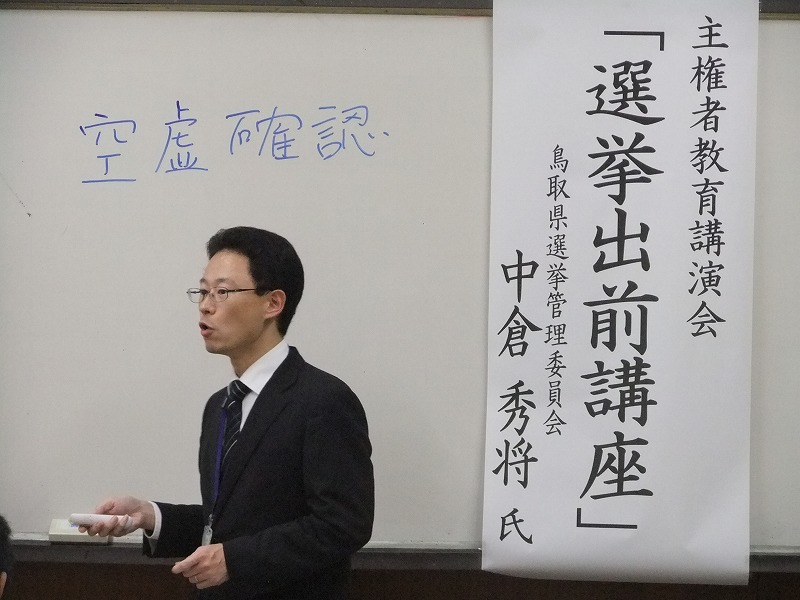 空虚確認
主権者教育講演会
「選挙出前講座」
鳥取県選挙管理委員会
中倉 秀将 氏